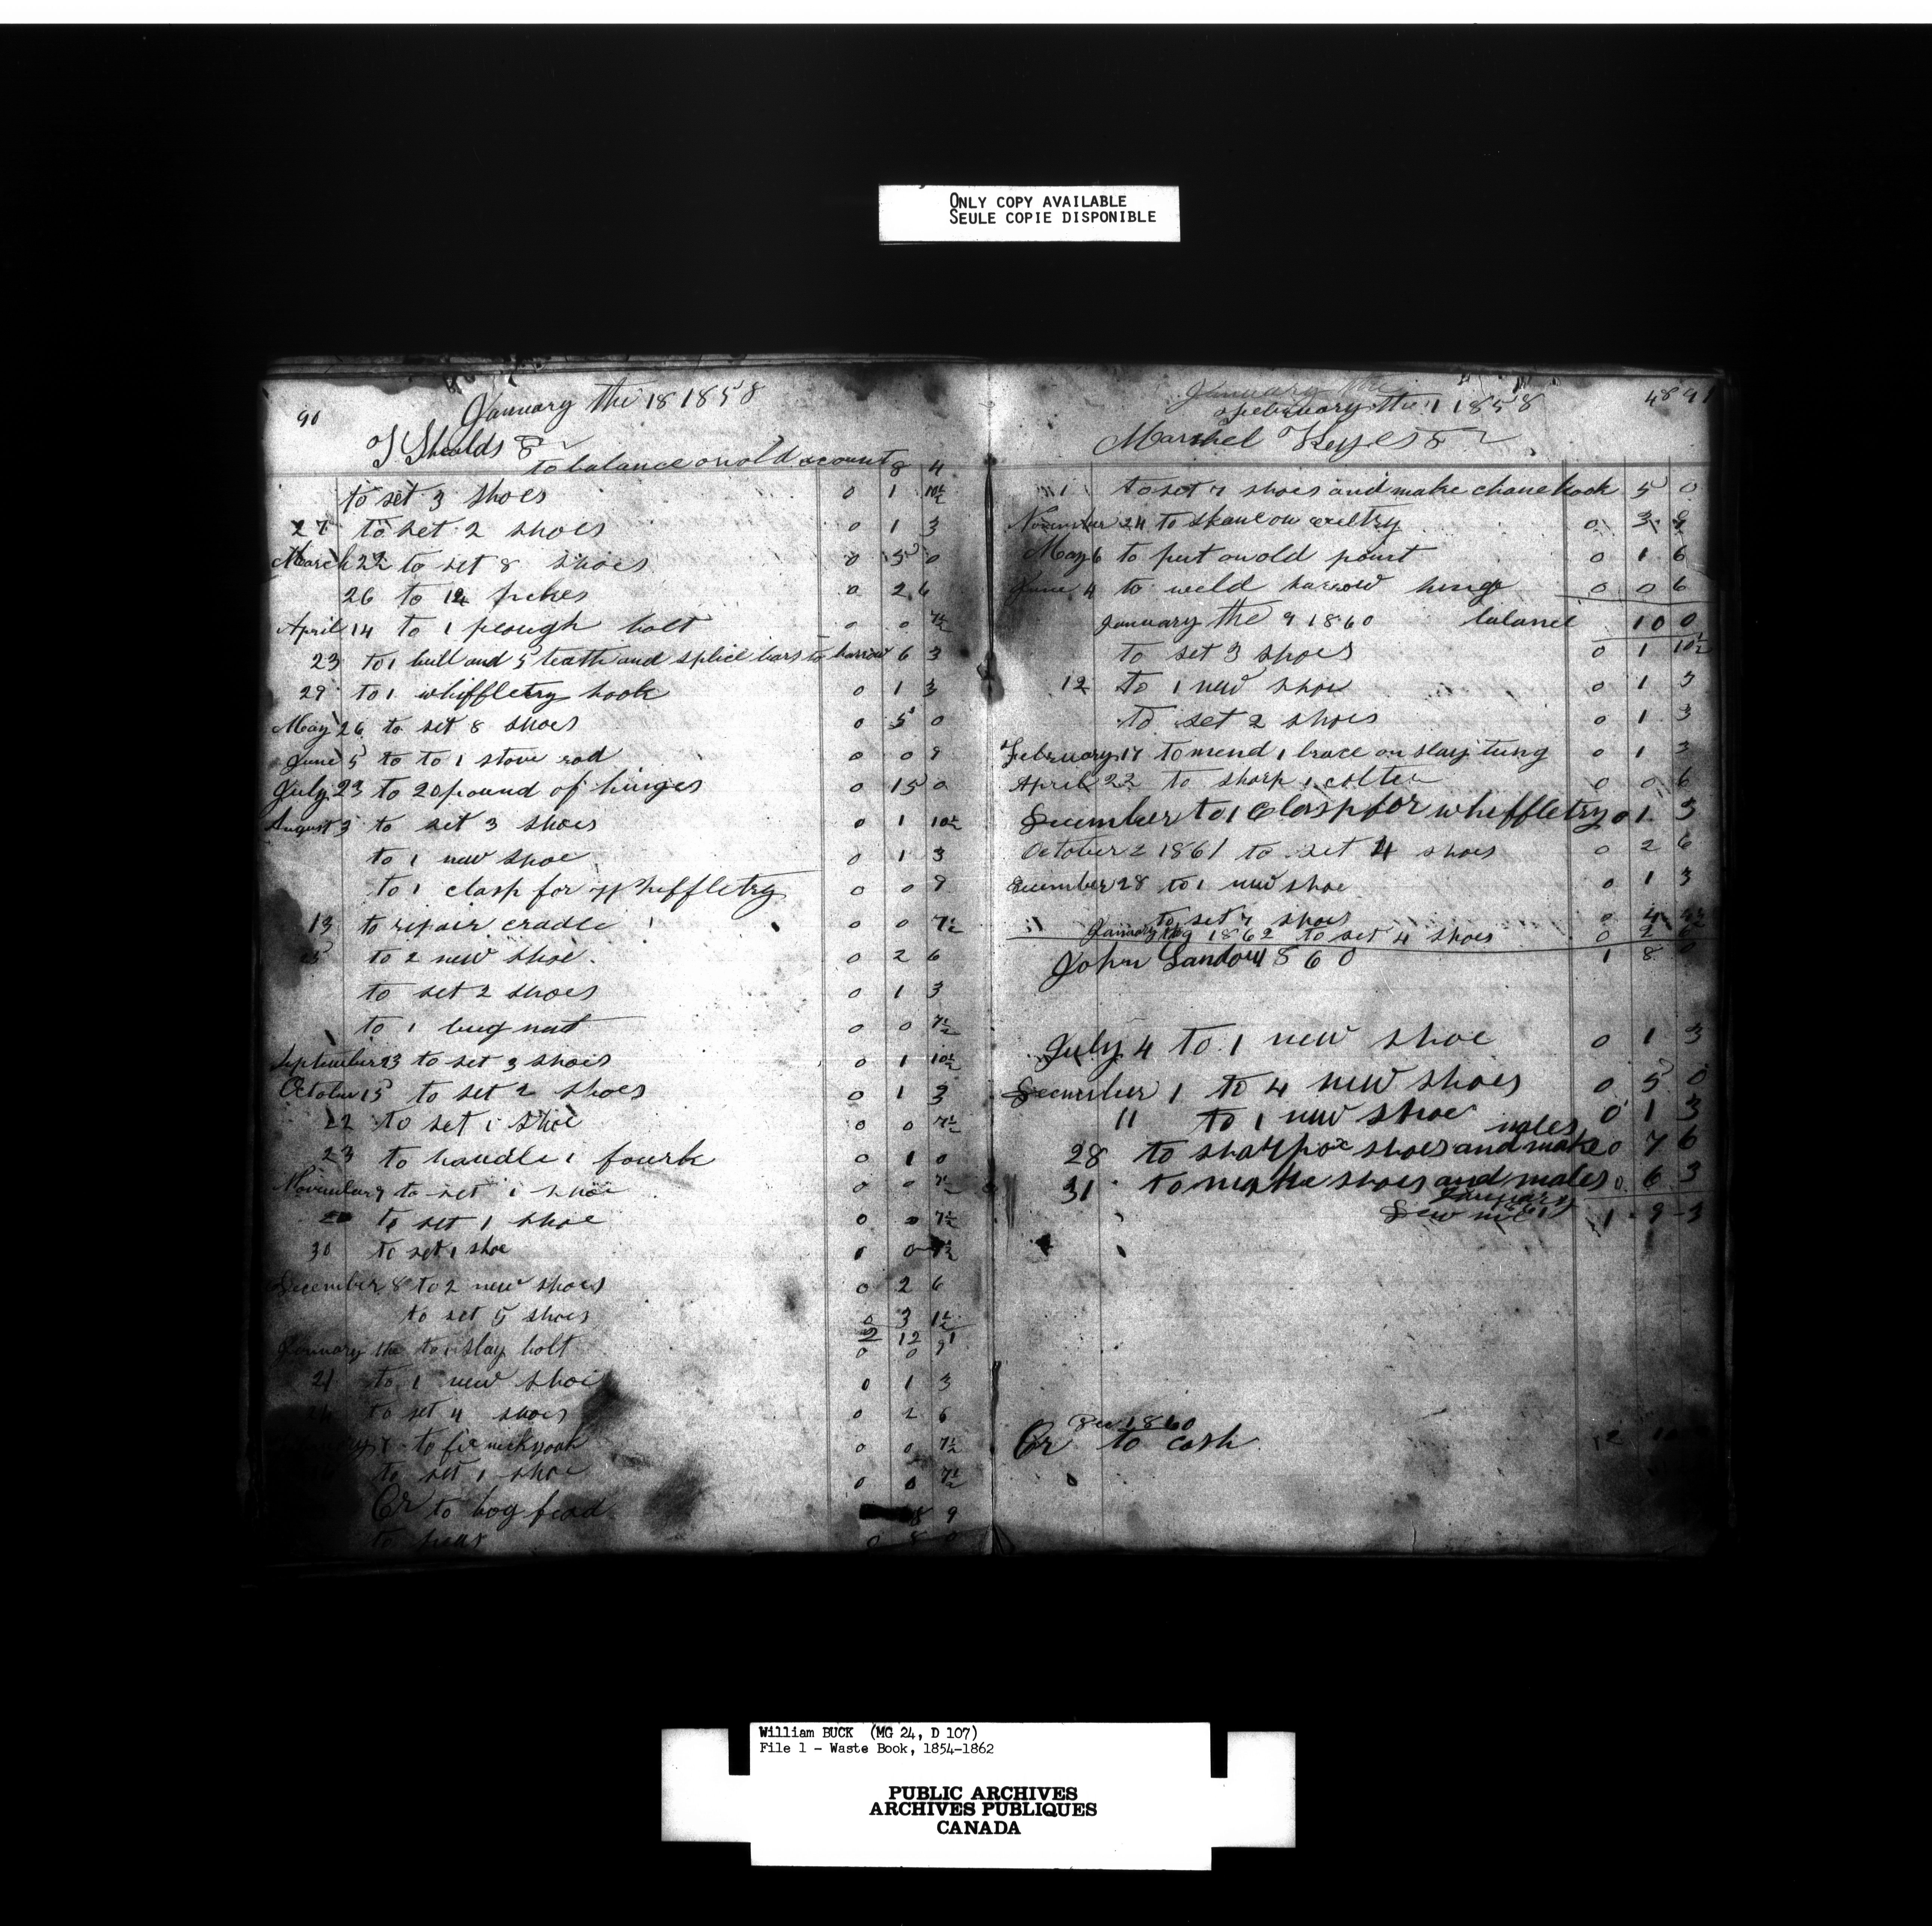 ONLY COPY AVAILABLE
SEULE COPIE DISPONIBLE
90
January the 18 1858
J Shealds Dr
to balance on old acount 8 4
to set 3 shoes 0 1 10½
27 to set 2 shoes 0 1 3
March 22 to set 8 shoes 0 5 0
26 to 12 pickes 0 2 6
April 14 to 1 plough bolt 0 0 7½
23 to 1 bull and 5 teath and splice bars to harrow 6 3
29 to 1 whiffletry hook 0 1 3
May 26 to set 8 shoes 0 5 0
June 5 to to 1 stove rod 0 0 9
July 23 to 20 pound of hinges 0 15 0
August 3 to set 3 shoes 0 1 10½
to 1 new shoe 0 1 3
to 1 clasp for Wheffletry 0 0 9
13 to repair cradle 0 0 7½
25 to 2 new shoe. 0 2 6
to set 2 shoes 0 1 3
to 1 bug nut 0 0 7½
September 23 to set 3 shoes 0 1 10½
October 15 to set 2 shoes 0 1 3
22 to set 1 shoe 0 0 7½
23 to handle 1 fourk 0 1 0
November 9 to set 1 shoe 0 0 7½
to set 1 shoe 0 0 7½
30 to set 1 shoe 0 0 7½
December 8 to 2 new shoes 0 2 6
to set 5 shoes 0 3 1½
2 12 1
January the to 1 slay bolt 0 0 9
21 to 1 new shoe 0 1 3
to set 4 shoes 0 2 6
to fix neckyoak 0 0 7½
to set 1 shoe 0 0 7½
Cr to hog fead 8 9
to peas 0 8 0
48 91
January the
February the 1 1858
Marshel Keyes Dr
1 to set 7 shoes and make chane hook 5 0
November 24 to skane on exeltry 0 3 9
May 6 to put on old point 0 1 6
June 4 to weld harrow hinge 0 0 6
January the 9 1860 balance 10 0
to set 3 shoes 0 1 10½
12 to 1 new shoe 0 1 3
to set 2 shoes 0 1 3
February 17 to mend 1 brace on slay tung 0 1 3
April 22 to sharp 1 colter 0 0 6
December to 1 Clasp for wheffletry 0 1 3
October 2 1861 to set 4 shoes 0 2 6
December 28 to 1 new shoe 0 1 3
to set 7 shoes 0 4 4½
January 1862 to set 4 shoes 0 2 6
John Landow 1860 1 8 0
July 4 to 1 new shoe 0 1 3
December 1 to 4 new shoes 0 5 0
11 to 1 new shoe 0 1 3
nales
28 to sharp ox shoes and make 0 7 6
31 to make shoes and nales 0 6 3
January
Dew me 1 9 3
Dec 1860
Cr to cash 12 10
William BUCK (MG 24, D 107)
File 1 - Waste Book, 1854-1862
PUBLIC ARCHIVES
ARCHIVES PUBLIQUES
CANADA